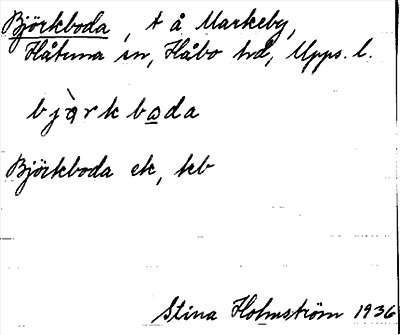 Björkboda, t å Markeby,
Håtuna sn, Håbo hd, Upps. l.
bjὰrkboda
Björkboda ek, kb
Stina Holmström 1936